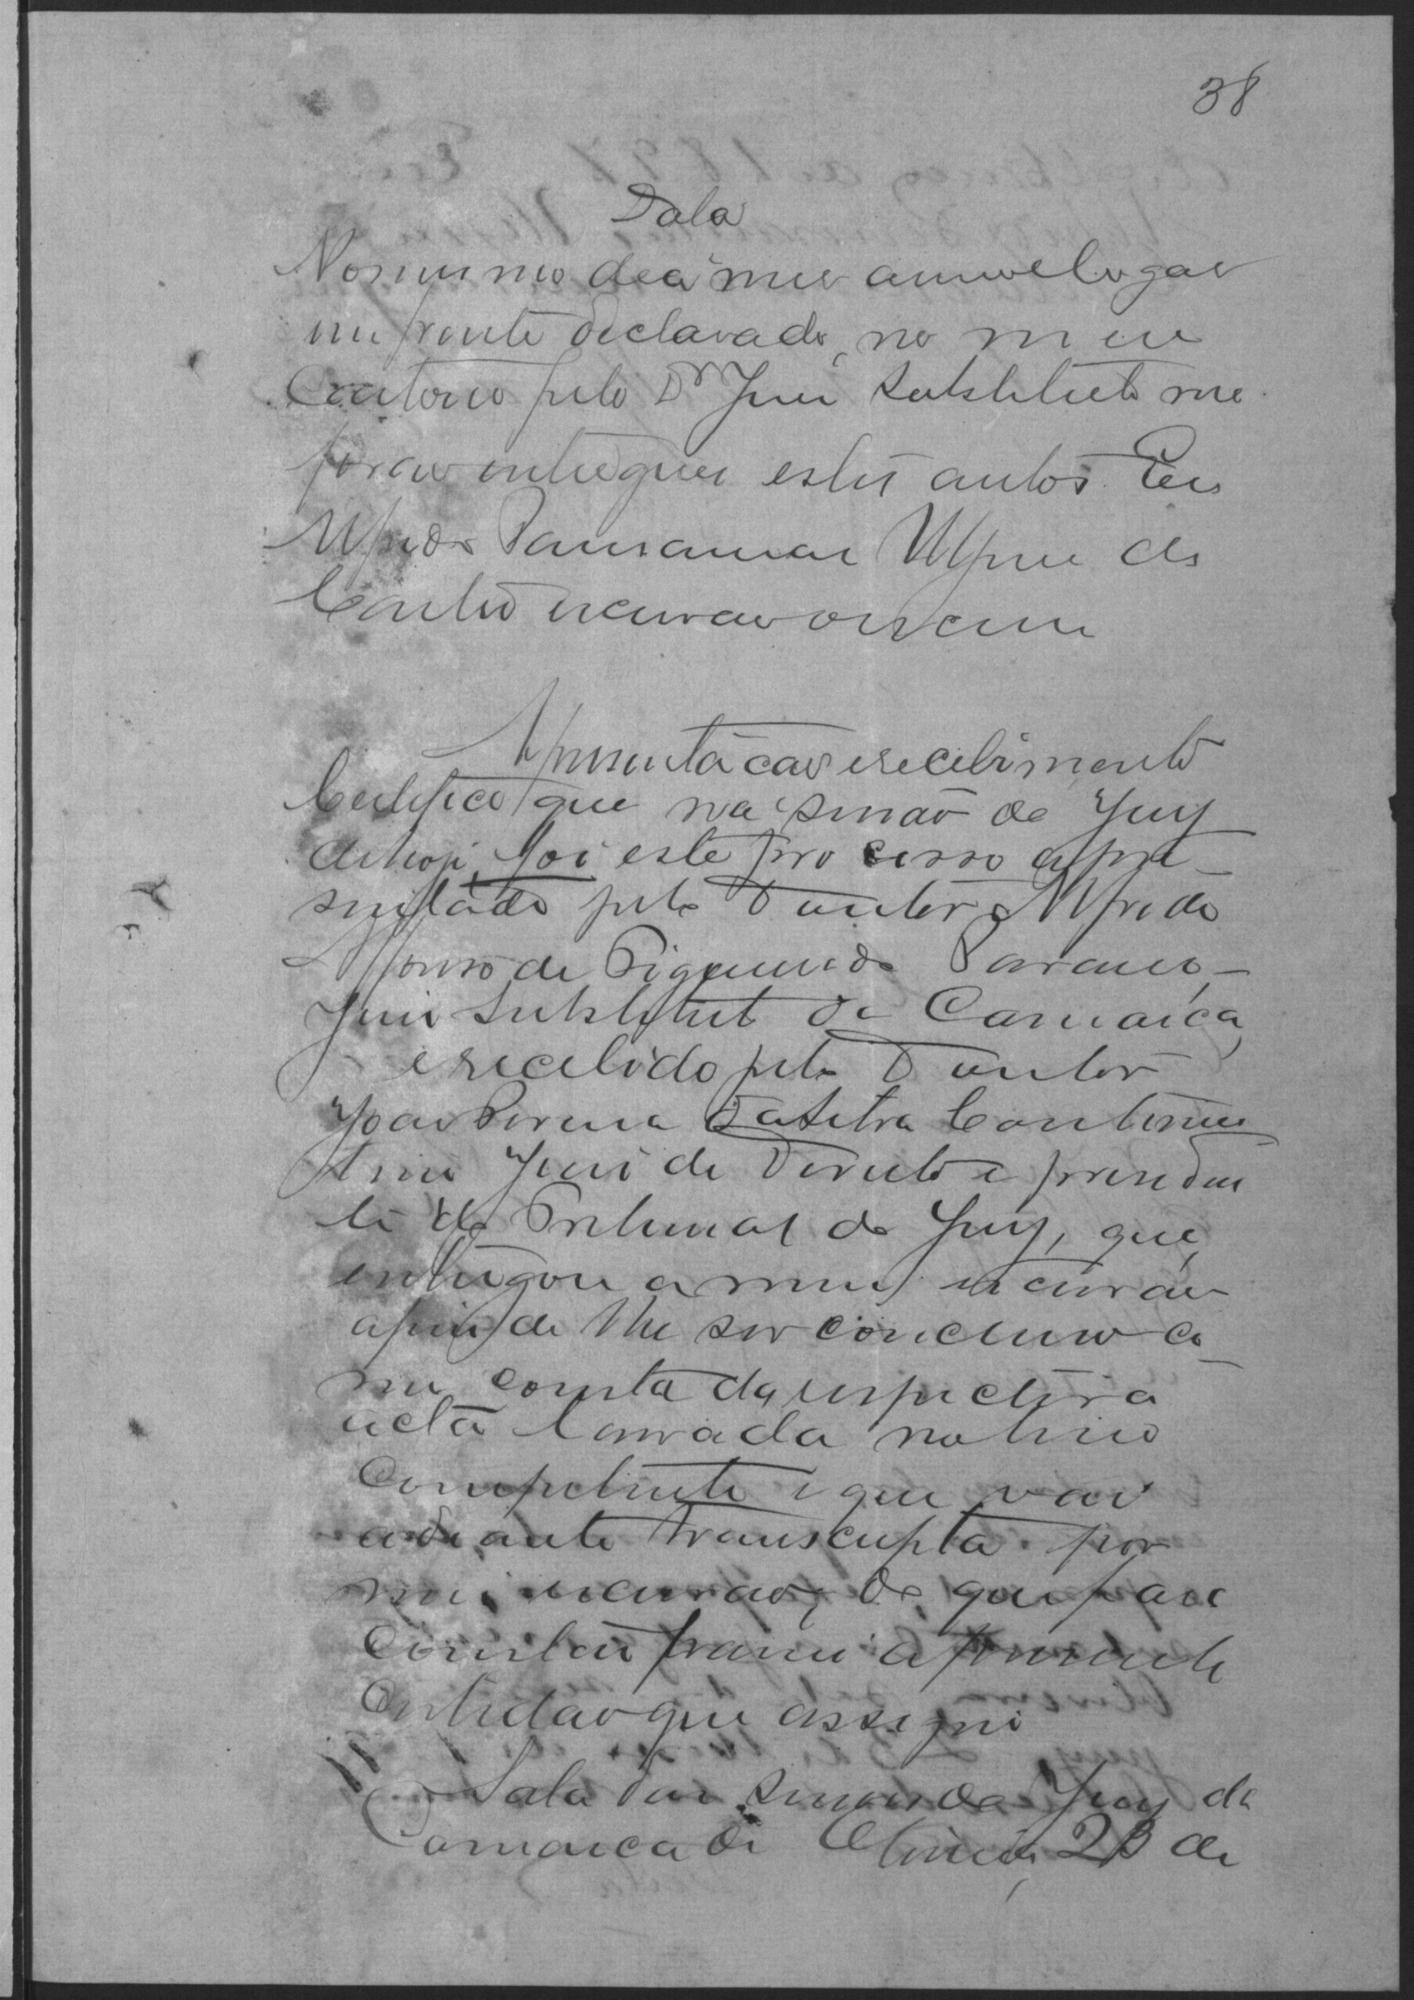 38
Data
No mesmo dia mes anno e lugar
em frente declarado, no meu
Cartorio pelo Dr Juiz Substituto me
forão entregues estes autos Eu
Alfredo Alfredo de
Castro escrivão escrevi
Apresentação e recebimento
Certifico que na sessão do Jury
de hoje, foi este processo apre-
sentado pelo Doutor Alfredo
Affonso de Figueiredo
Juiz Substituto da Comarca,
e recebido pelo Doutor
João Pereira da Silva Continen-
tino Juiz de Direito e presiden
te do Tribunal do Jury, que
entregou a mim escrivão
afim de lhe ser concluso co-
mo consta da respectiva
acta lavrada no livro
Competente e que vai
adiante transcripta por
mim escrivão, do que para
Constar passei a presente
Certidão que assigno
Sala das sessões do Jury da
Comarca de Oliveira, 23 de